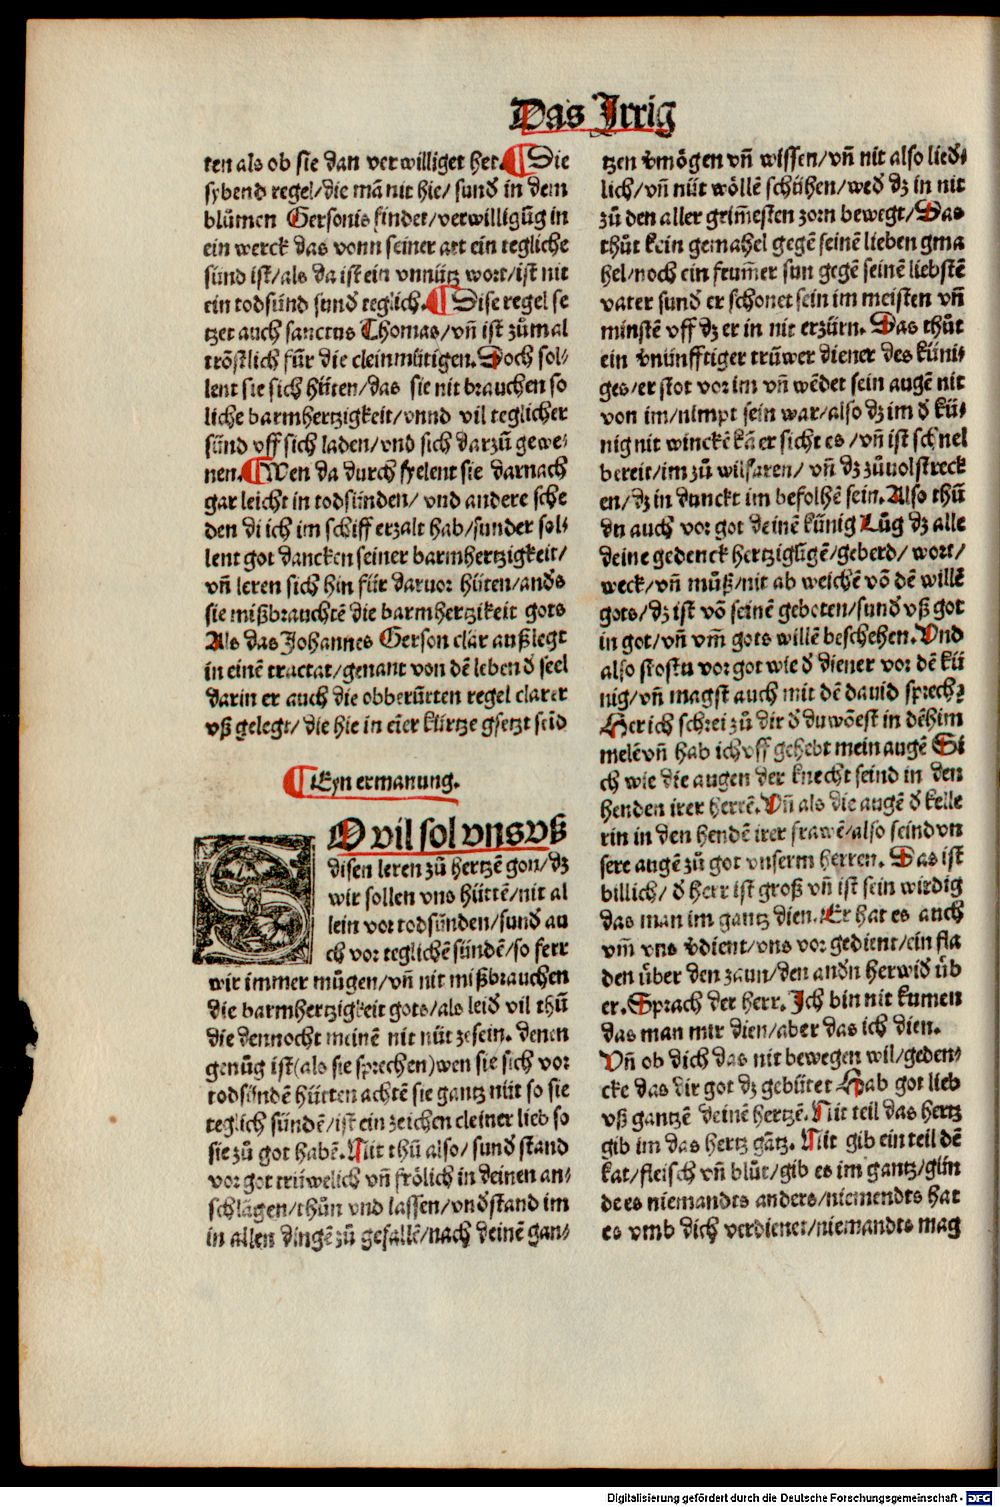 Das Jrrig
ten als ob sie dan verwilliget het. ¶ Die
sybend regel/die mā nit hie/ sund̄ in dem
blůmen Gersonis findet/verwilligūg in
ein werck das vonn seiner art ein tegliche
sünd ist/als da ist ein vnnütz wort/ist nit
ein todsünd sund̄ teglich. ¶ Dise regel se
tzet auch sanctus Thomas/vñ ist zůmal
tröstlich für die cleinmütigen. Doch sol⸗
lent sie sich hüten/das sie nit brauchen so
liche barmhertzigkeit/vnnd vil teglicher
sünd vff sich laden/vnd sich darzů gewe⸗
nen. ¶ Wen da durch fyelent sie darnach
gar leicht in todsünden/ vnd andere sche
den di ich im schiff erzalt hab/sunder sol⸗
lent got dancken seiner barmhertzigkeit/
vñ leren sich hin für daruor hüten/and̄s
sie mißbrauchtē die barmhertzikeit gots
Als das Johannes Gerson clar außlegt
in einē tractat/genant von dē leben d̄ seel
darin er auch die obberůrten regel clarer
vß gelegt/die hie in eīer kürtze gsetzt seīd
¶ Eyn ermanung.
SO vil sol vns vß
disen leren zů hertzē gon/dz
wir sollen vns hüttē/nit al
lein vor todsünden/sund̄ au
ch vor teglichē sündē/so ferr
wir immer mügen/vñ nit mißbrauchen
die barmhertzigkeit gots/als leid̄ vil thů
die dennocht meinē nit nüt ze sein. denen
genůg ist(als sie sprechen)wen sie sich vor
todsündē hütten achtē sie gantz nüt so sie
teglich sündē/ist ein zeichen cleiner lieb so
sie zů got habē. Nit thů also/ sund̄ stand
vor got trüwelich vñ frölich in deinen an⸗
schlägen/thůn vnd lassen/vnd stand im
in allen dingē zů gefallē/nach deinē gan⸗
tzen v̄mögen vñ wissen/vñ nit also lied⸗
lich/vñ nüt wöllē schühen/wed̄ dz in nit
zů den aller grim̄esten zorn bewegt/Das
thůt kein gemahel gegē seinē lieben gma
hel/noch ein frum̄er sun gegē seinē liebstē
vater sund̄ er schonet sein im meisten vñ
minstē vff dz er in nit erzürn. Das thůt
ein v̄nünfftiger trüwer diener des küni⸗
ges/er stot vor im vñ wēdet sein augē nit
von im/nimpt sein war/also dz im d̄ kü⸗
nig nit winckē kā er sicht es /vñ ist schnel
bereit/im zů wilfaren/ vñ dz zůuolstreck
en/dz in dunckt im befolhē sein. Also thů
du auch vor got deinē künig Lůg dz alle
deine gedenck hertzigligē/geberd/ wort/
weck/vñ můß/nit ab weichē vō dē willē
gots/dz ist vō seinē geboten/sund̄ vß got
in got/vñ vm̄ gots willē beschehen. Vnd
also stostu vor got wie d̄ diener vor dē kü
nig/vñ magst auch mit dē dauid sprechē
Her ich schrei zů dir d̄ du wōest in dē him
melē vñ hab ich vff gehebt mein augē Si
ch wie die augen der knecht seind in den
henden irer herrē. Vñ als die augē d̄ kelle
rin in den hendē irer frawē/also seind vn
sere augē zů got vnserm herren. Das ist
billich/ d̄ herr ist groß vñ ist sein wirdig
das man im gantz dien. Er hat es auch
vm̄ vns v̄dient/vns vor gedient/ein fla
den über den zaun/den andn̄ herwid̄ üb
er. Sprach der herr. Ich bin nit kumen
das man mir dien/aber das ich dien.
Vñ ob dich das nit bewegen wil/geden⸗
cke das dir got dz gebütet Hab got lieb
vß gantzē deinē hertzē. Nit teil das hertz
gib im das hertz gātz. Nit gib ein teil dē
kat/fleisch vñ blůt/gib es im gantz/gün
de es niemandts anders/niemendts hat
es vmb dich verdienet/niemandts mag
Digitalisierung gefördert durch die Deutsche Forschungsgemeinschaft - DFG